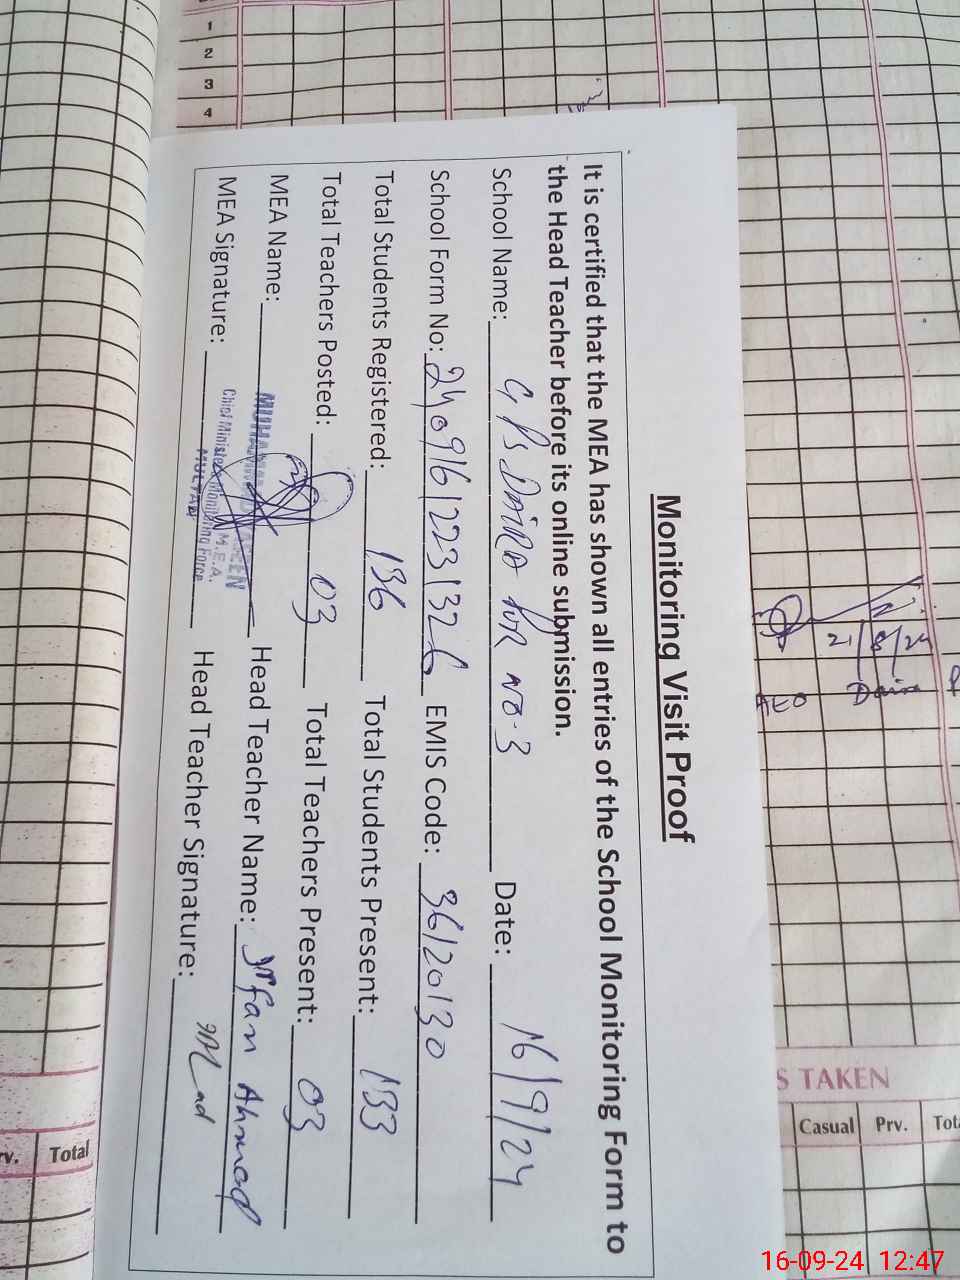 1
2
3
4
Monitoring Visit Proof
It is certified that the MEA has shown all entries of the School Monitoring Form to
the Head Teacher before its online submission.
School Name: GPS DAIRA PUR NO.3 Date: 16/9/24
School Form No: 24091612231326 EMIS Code: 36120130
Total Students Registered: 136 Total Students Present: 133
Total Teachers Posted: 03 Total Teachers Present: 03
MEA Name: MUHAMMAD Head Teacher Name: Irfan Ahmad
M.E.A.
MEA Signature: Head Teacher Signature:
Chief Minister Monitoring Force
MULTAN
21/8/24
AEO Daira
S TAKEN
Casual Prv. Tot
rv. Total
16-09-24 12:47